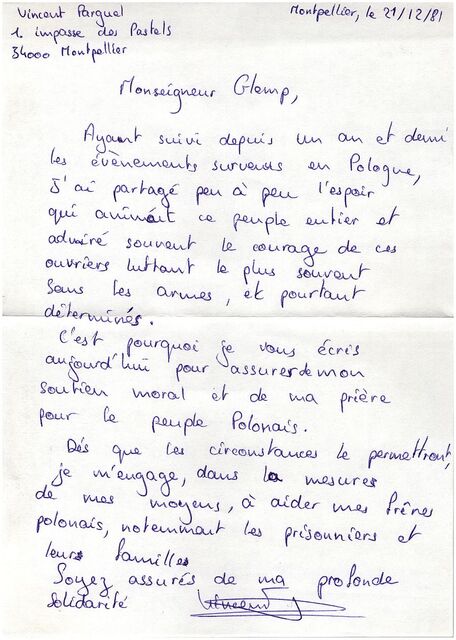 Vincent Parguel
1. impasse des Pastels
34000 Montpellier
Montpellier, le 21/12/81
Monseigneur Glemp,
Ayant suivi depuis un an et demi
les évènements survenus en Pologne,
J'ai partagé peu à peu l'espoir
qui animait ce peuple entier et
admiré souvent le courage de ces
ouvriers luttant le plus souvent
sans les armes, et pourtant
déterminés.
C'est pourquoi je vous écris
aujourd'hui pour assurer de mon
soutien moral et de ma prière
pour le peuple Polonais.
Dés que les circonstances le permettront,
je m'engage, dans la mesures
de mes moyens, à aider mes frères
polonais, notemmant les prisonniers et
leurs familles
Soyez assurés de ma profonde
solidarité
Vincent